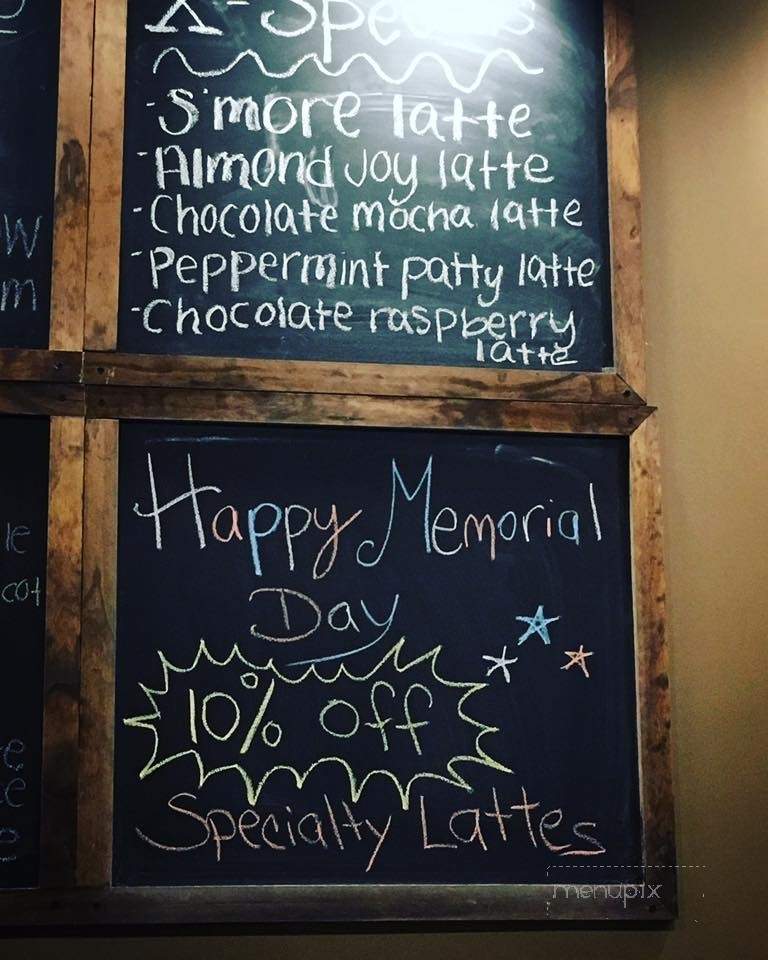 X-Specials
-S'more latte
-Almond Joy latte
-Chocolate mocha latte
-Peppermint patty latte
-Chocolate raspberry
latte
W
m
le
cot
e
e
e
Happy Memorial
Day
10% off
Specialty Lattes
menupix